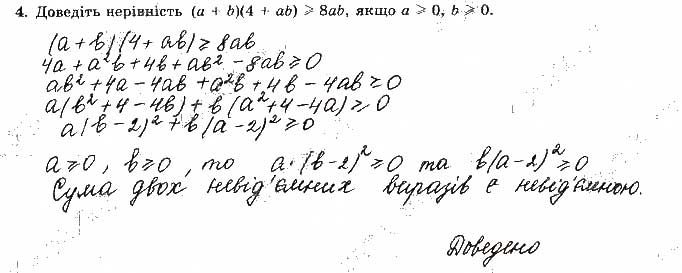 4. Доведіть нерівність (a + b)(4 + ab) ⩾ 8ab, якщо a ⩾ 0, b ⩾ 0.
(a + b)(4 + ab) ≥ 8ab
4a + a²b + 4b + ab² - 8ab ≥ 0
ab² + 4a - 4ab + a²b + 4b - 4ab ≥ 0
a(b² + 4 - 4b) + b(a² + 4 - 4a) ≥ 0
a(b - 2)² + b(a - 2)² ≥ 0
a ≥ 0, b ≥ 0, то a·(b - 2)² ≥ 0 та b(a - 2)² ≥ 0
Сума двох невід'ємних виразів є невід'ємною.
Доведено